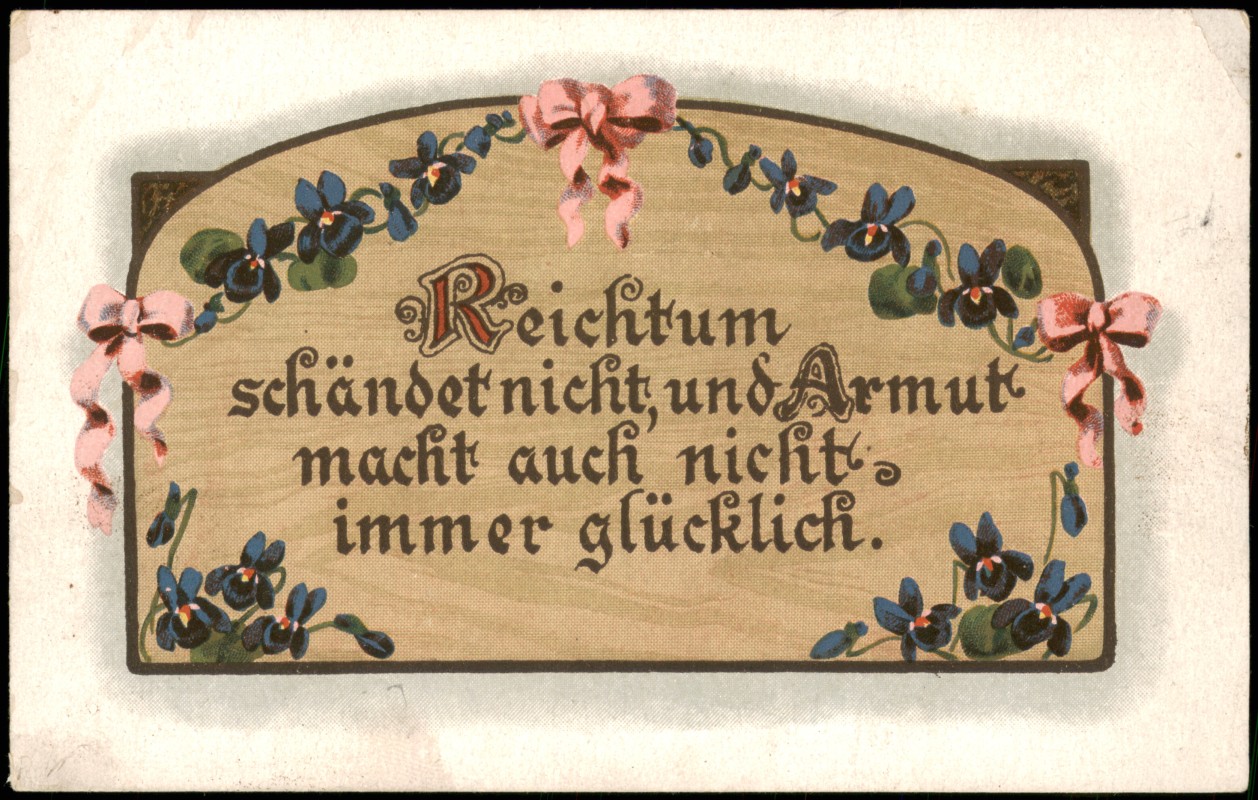 Reichtum
schändet nicht, und Armut
macht auch nicht
immer glücklich.